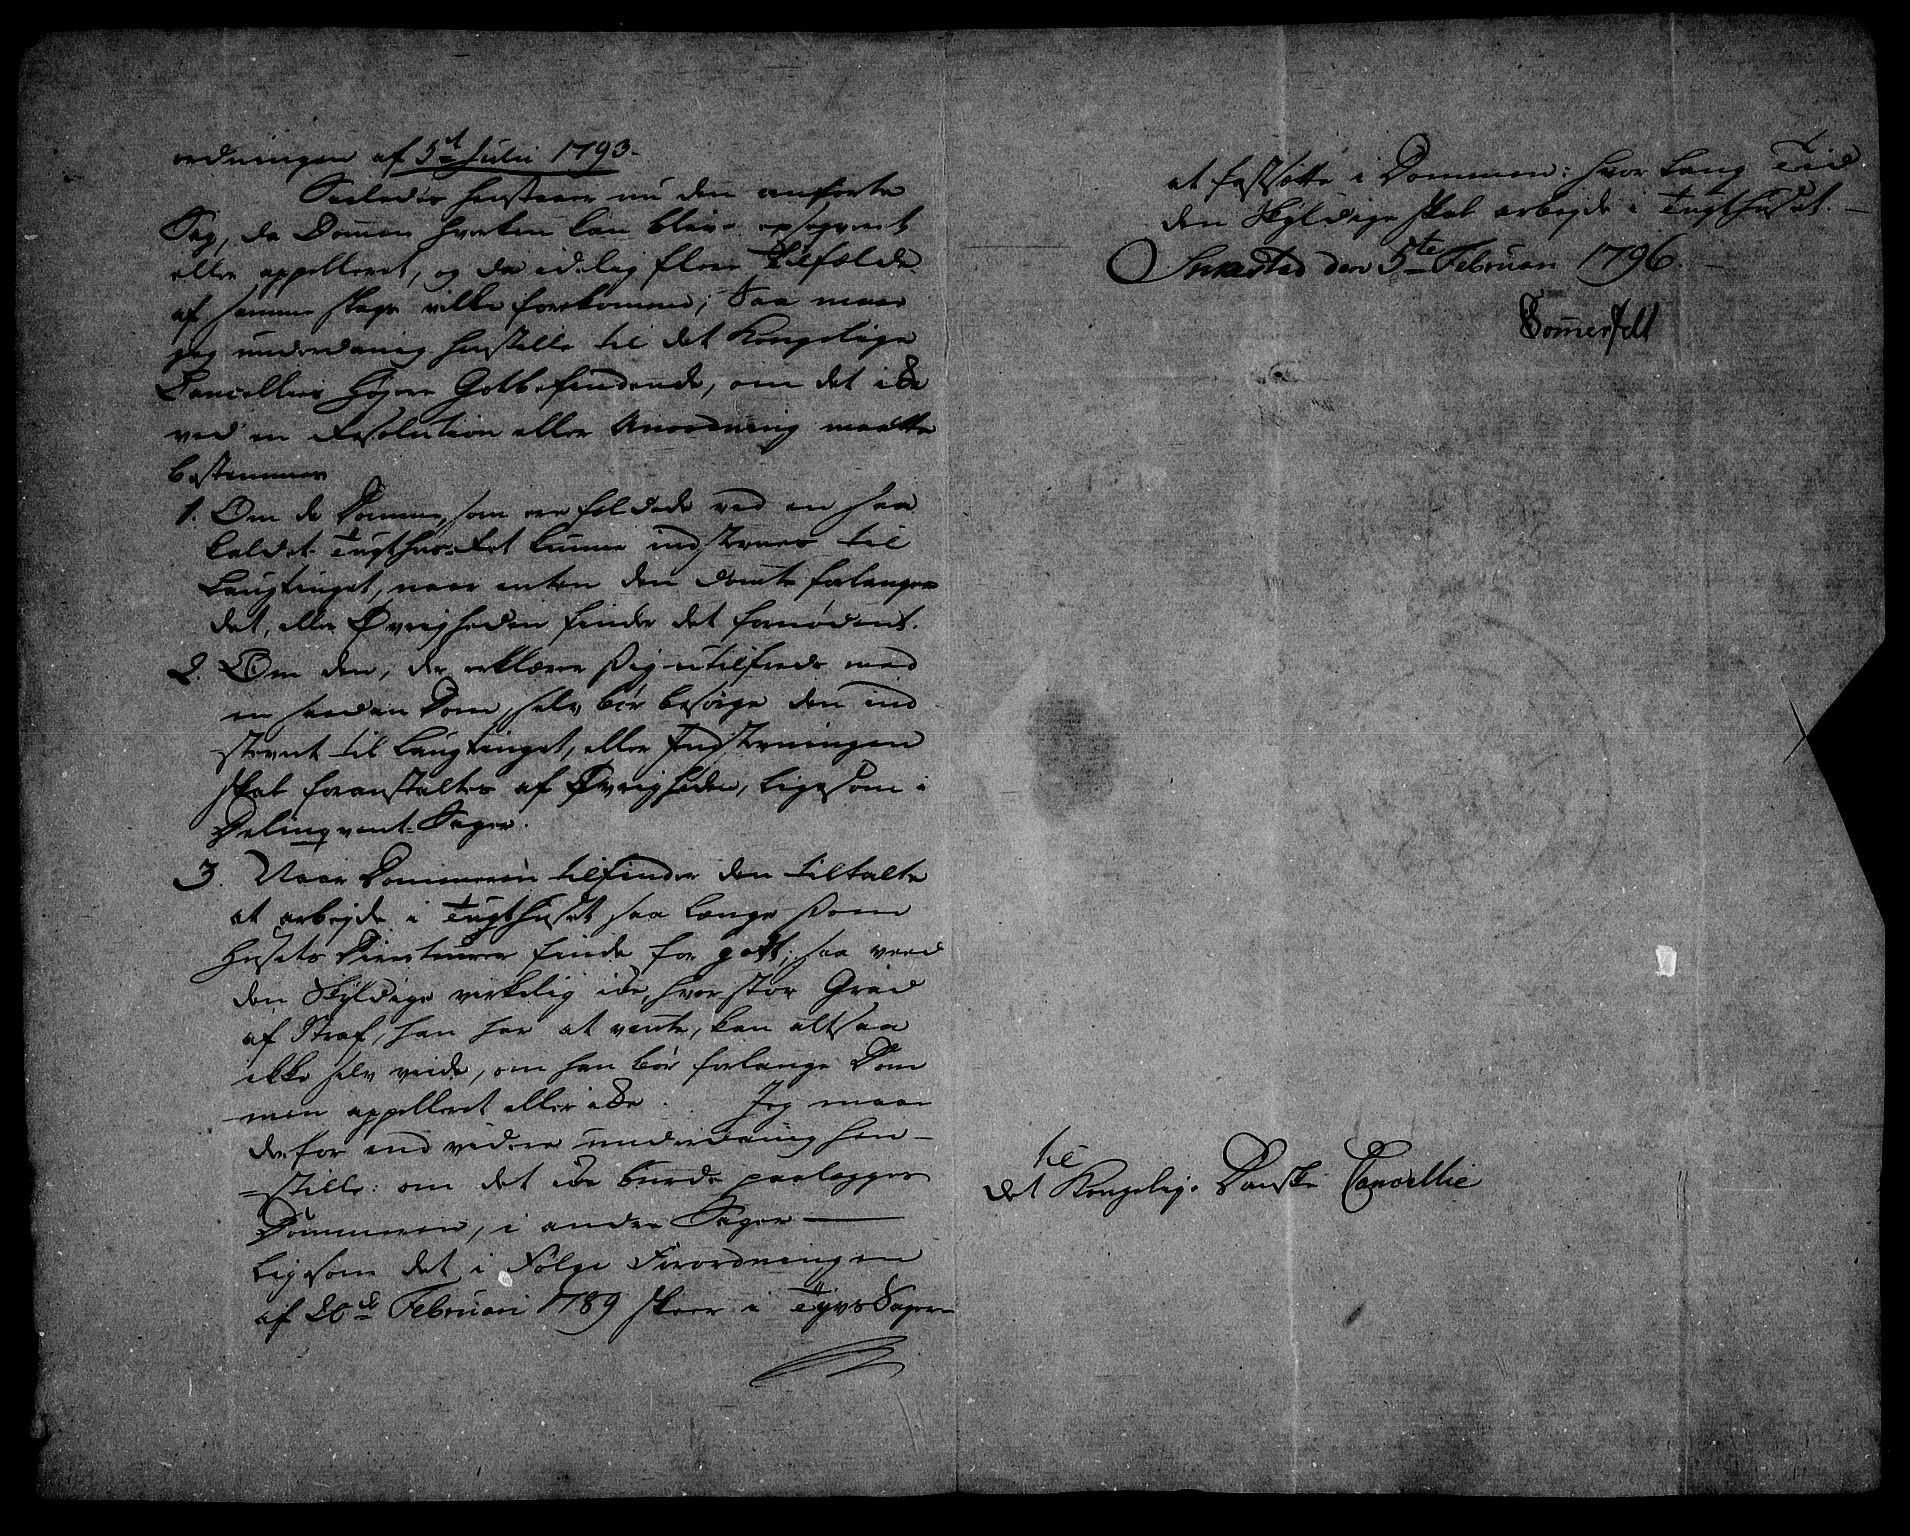 ordningen af 5d Julii 1793.
Saaledes henstaaer nu den anførte
Sag, da Dommen hverken kan blive exseqveret
eller appelleret, og da idelig flere Tilfælde
af samme slags ville forekomme; Saa maae
jeg underdanig henstille til det Kongelige
Cancellies høyere Gotbefindende, om det ikke
ved en Resolution eller Anordning maatte
bestemmes
1. Om de Domme, som ere fældede ved en saa
kaldet Tugthus-Ret kunne indstevnes til
Laugtinget, naar enten den dømte forlanger
det, eller Øvrigheden finder det fornødent.
2. Om den, der erklærer sig utilfreds med
en saadan Dom, selv bør besørge den ind
stevnt til Laugtinget, eller Indstevningen
skal foranstaltes af Øvrigheden, ligesom i
Delinqvent-Sager.
3. Naar Dommeren tilfinder den tiltalte
at arbejde i Tugthuset saa længe som
husets Directeurer finde for gott; saa veed
den skyldige virkelig ikke, hvor stor Grad
af Straf, han har at vente, kan altsaa
ikke selv vide, om han bør forlange Dom
men appelleret eller ikke. Jeg maae
derfor end videre underdanig hen-
=stille: om det ikke burde paalægges
Dommeren, i andre Sager
ligesom det i Følge Forordningen
af 20de Februari 1789 skeer i Tyvs Sager
at fastsætte i Dommen: hvor lang Tid
den skyldige skal arbejde i Tugthuset.
Smested den 5te Februari 1796.
Sommerfelt
til
det Kongelige Danske Cancellie